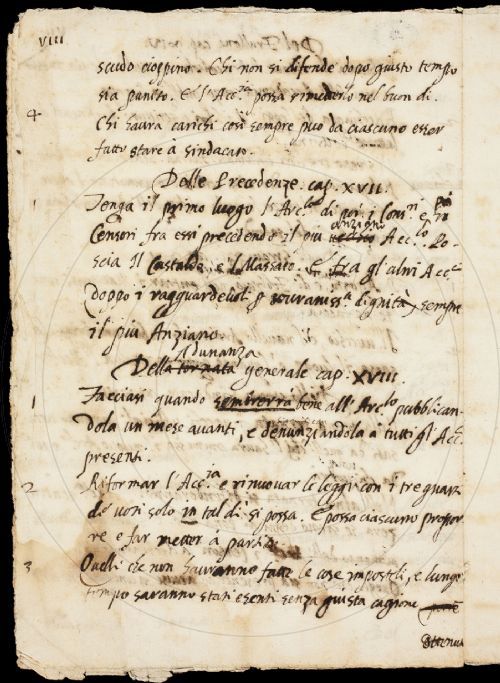 VIII
scudo cioppino. Chi non si difende dopo giusto tempo
sia punito. E l'Acc.ia possa rimederlo nel buon di.
4 Chi haura carichi così sempre puo da ciascuno esser
fatto stare à sindacato.
Delle Precedenze. cap. XVII.
1 Tenga il primo luogo l'Arc.lo di poi i Cons.ri e poi
Censori fra essi precedendo il più anziano Acc.co Po-
scia Il Castaldo, e l Massaio. E fra gl'altri Acc.ci
doppo i ragguardevoli p sovraniss.a dignità, sempre
il più Anziano.
Adunanza
Della tornata generale cap. XVIII.
1 Facciasi quando sembrerrà bene all'Arc.lo pubblican-
dola un mese avanti, e denunziandola à tutti gl'Acc.ci
presenti.
2 Riformar l'Acc.ia e rinuovar le leggi con i tre quar-
ti de voti solo in tal di si possa. E possa ciascuno propor-
re e far metter à partito.
3 Quelli che non hauranno fatte le cose impostoli, e lungo
tempo saranno stati esenti senza giusta cagione